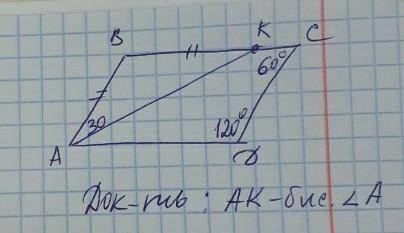 B K C
60°
30 120°
A D
Док-ть : AK-бис. ∠A